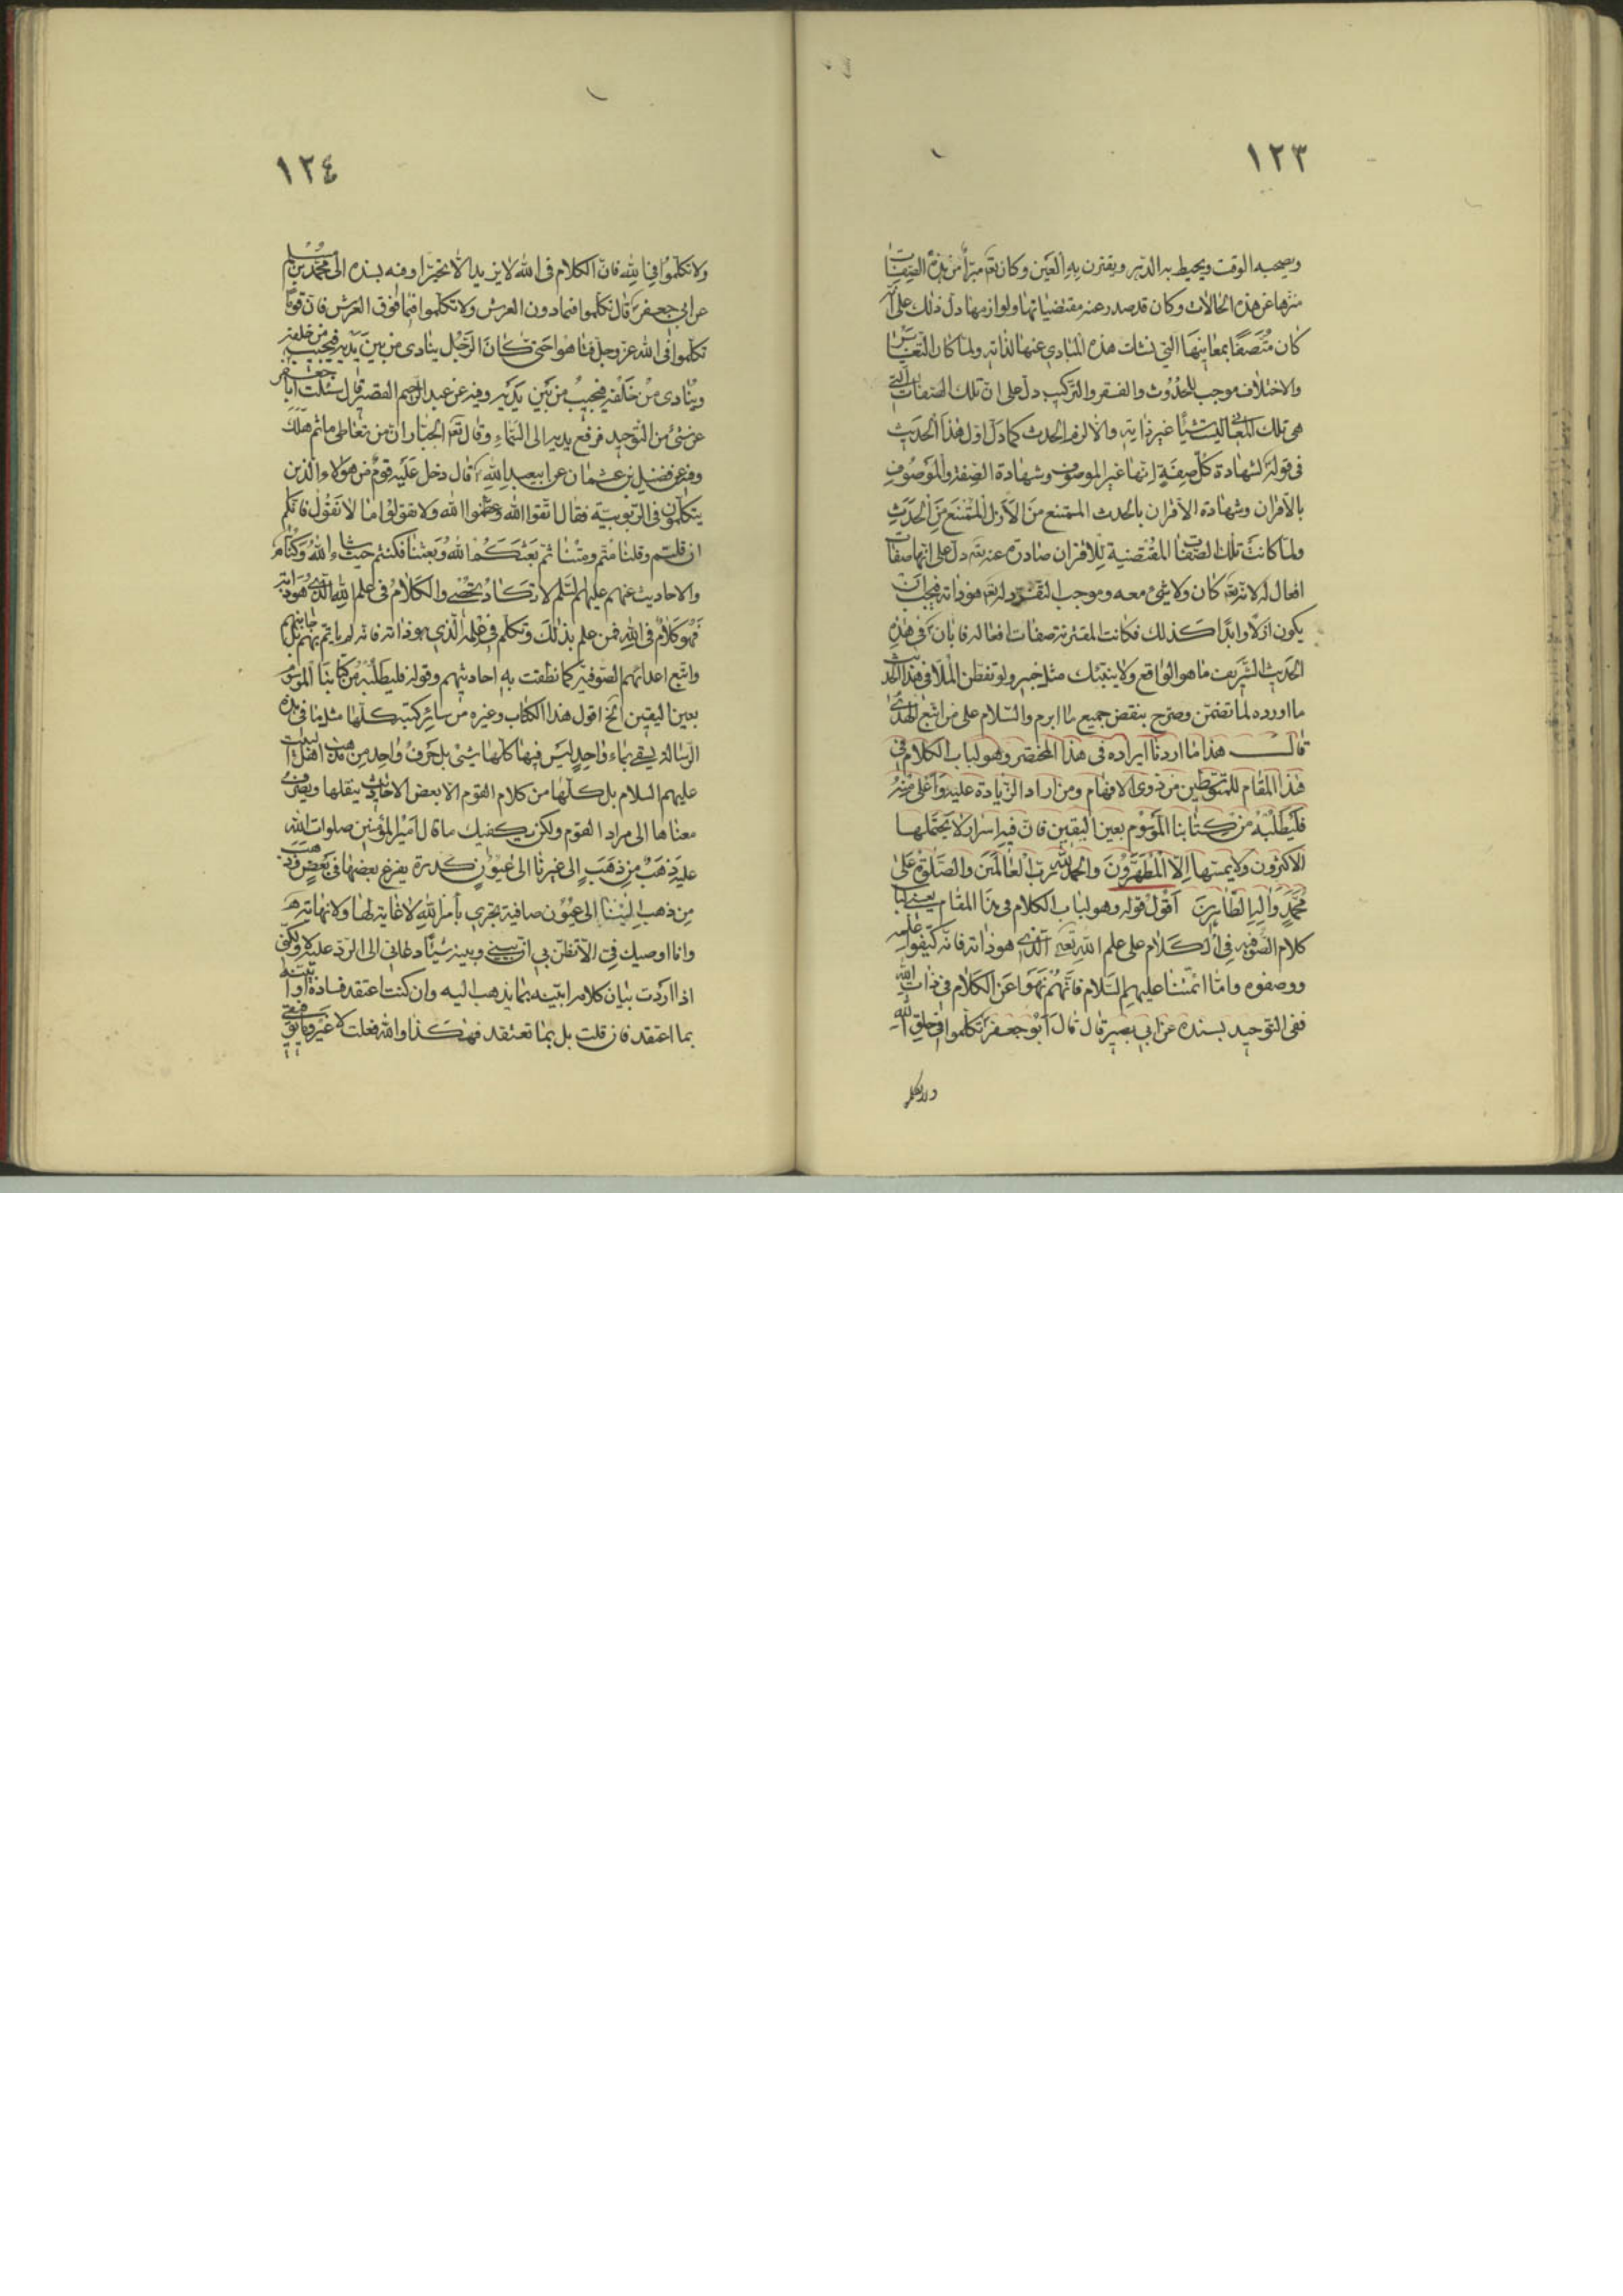 ١٢٣
ويصحبه الوقت ويحيط به الدهر ويقترن به العين وكان تعم مبرأ من هذه الصفات
منزها عن هذه الحالات وكان قد صدر عنه مقتضياتها ولوازمها دل ذلك على انه
كان متصفا بمعانيها التي نشات هذه المبادي عنها لذاته ولما كان التغاير
والاختلاف موجب للحدوث والفقر والتركيب دل على ان تلك الصفات التي
هي تلك المعاني ليست شيئا غير ذاته والا لزم الحدث كما دل اول هذا الحديث
في قوله لشهادة كل صفة انها غير الموصوف وشهادة الصفة والموصوف
بالاقتران وشهادة الاقتران بالحدث الممتنع من الازل الممتنع من الحدث
ولما كانت تلك الصفات المقتضية للاقتران صادرة عنه تعم دل على انها صفات
افعال له لانه تعم كان ولا شئ معه وموجب التفرد له تعم هو ذاته فيجب ان
يكون ازلا وابدا كذلك فكانت المقترنة صفات افعاله فابان في هذه
الحديث الشريف ما هو الواقع ولا ينبئك مثل خبير ولو تفطن الملا في هذا الحديث
ما اورده لما تضمن وصرح بنقض جميع ما ابرم والسلام على من اتبع الهدى
قال هذا ما اردنا ايراده في هذا المختصر وهو لباب الكلام في
هذا المقام للمتوسطين من ذوي الافهام ومن اراد الزيادة عليه واعلى منه
فليطلبه من كتابنا الموسوم بعين اليقين فان فيه اسرار لا يحتملها
الاكثرون ولا يمسها الا المطهرون والحمد لله رب العالمين والصلوة على
محمد واله الطاهرين اقول قوله وهو لباب الكلام في هذا المقام يعني لباب
كلام الصوفيه في الكلام على علم الله تعم الذي هو ذاته فانه كيفوا علمه
ووصفوه واما ائمتنا عليهم السلام فانهم نهوا عن الكلام في ذات الله
ففي التوحيد بسنده عن ابي بصير قال قال ابو جعفر تكلموا في خلق الله
ولا تكلموا
١٢٤
ولا تكلموا في الله فان الكلام في الله لا يزيد الا تحيرا وفيه بسنده الى محمد بن مسلم
عن ابي جعفر قال تكلموا فيما دون العرش ولا تكلموا فيما فوق العرش فان قوما
تكلموا في الله عز وجل فتاهوا حتى كان الرجل ينادى من بين يديه فيجيب من خلفه
وينادى من خلفه فيجيب من بين يديه وفيه عن عبد الرحيم القصير قال سئلت ابا جعفر
عن شئ من التوحيد فرفع يديه الى السماء وقال تعم الجبار ان من تعاطى ما ثم هلك
وفيه عن فضيل بن عثمان عن ابيعبد الله قال دخل عليه قوم من هؤلاء الذين
يتكلمون في الربوبية فقال اتقوا الله وعظموا الله ولا تقولوا ما لا نقول فانكم
ان قلتم وقلنا متم ومتنا ثم بعثكم الله وبعثنا فكنتم حيث شاء الله وكنا
والاحاديث عنهم عليهم السلم لا تكاد تحصى والكلام في علم الله الذي هو ذاته
فهو كلام في الله فمن علم بذلك وتكلم في علمه الذي هو ذاته فانه لم ياتم بهم بل جانبهم
واتبع اعدائهم الصوفية كما نطقت به احاديثهم وقوله فليطلبه من كتابنا الموسوم
بعين اليقين الخ اقول هذا الكتاب وغيره من سائر كتبه كلها مثل ما في هذه
الرسالة يسقى بماء واحد ليس فيها كلها شئ بل حرف واحد من مذهب اهل البيت
عليهم السلام بل كلها من كلام القوم الا بعض الاحاديث ينقلها ويصرف
معناها الى مراد القوم ولكن يكفيك ما قال امير المؤمنين صلوات الله
عليه ذهب من ذهب الى غيرنا الى عيون كدرة يفرغ بعضها في بعض وذهب
من ذهب الينا الى عيون صافية تجري بأمر الله لا غاية لها ولا نهاية
وانا اوصيك في الا تظن بي ان بيني وبينه شيئا دعاني الى الرد عليه لا ولكني
اذا اردت بيان كلامه ابينه بما يذهب اليه وان كنت اعتقد فساده او ابينه
بما اعتقد فان قلت بل بما تعتقد فهكذا والله فعلت لا غير